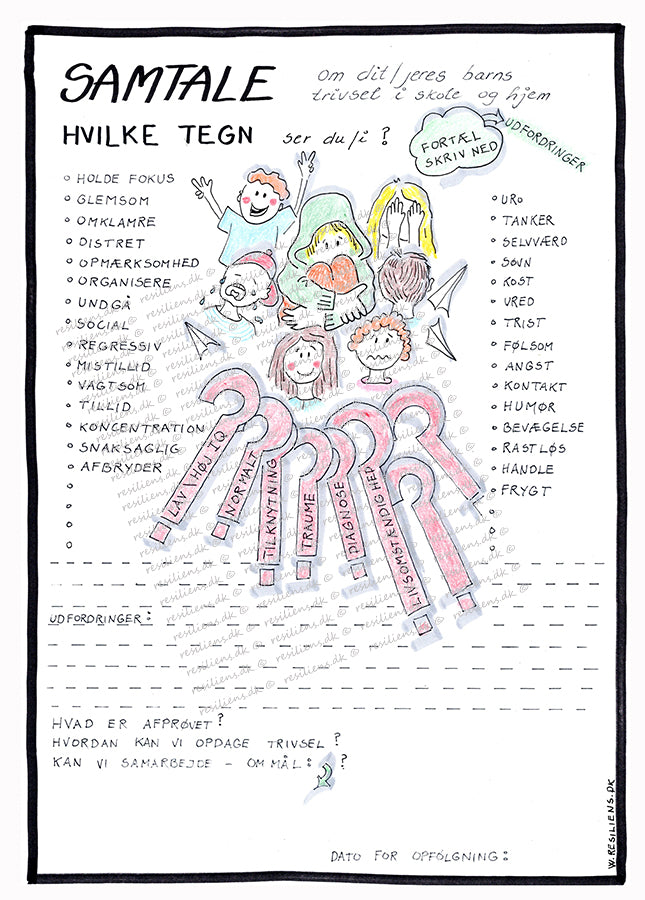 SAMTALE
om dit/jeres barns
trivsel i skole og hjem
HVILKE TEGN ser du/i?
FORTÆL
SKRIV NED
UDFORDRINGER
HOLDE FOKUS
GLEMSOM
OMKLAMRE
DISTRET
OPMÆRKSOMHED
ORGANISERE
UNDGÅ
SOCIAL
REGRESSIV
MISTILLID
VAGTSOM
TILLID
KONCENTRATION
SNAKSAGLIG
AFBRYDER
URO
TANKER
SELVVÆRD
SØVN
KOST
URED
TRIST
FØLSOM
ANGST
KONTAKT
HUMØR
BEVÆGELSE
RASTLØS
HANDLE
FRYGT
LAV\HØJ IQ
NORMALT
TILKNYTNING
TRAUME
DIAGNOSE
LIVSOMSTÆNDIGHED
resiliens.dk ©
UDFORDRINGER:
HVAD ER AFPRØVET?
HVORDAN KAN VI OPDAGE TRIVSEL?
KAN VI SAMARBEJDE - OM MÅL: ?
DATO FOR OPFÖLGNING:
W.RESILIENS.DK